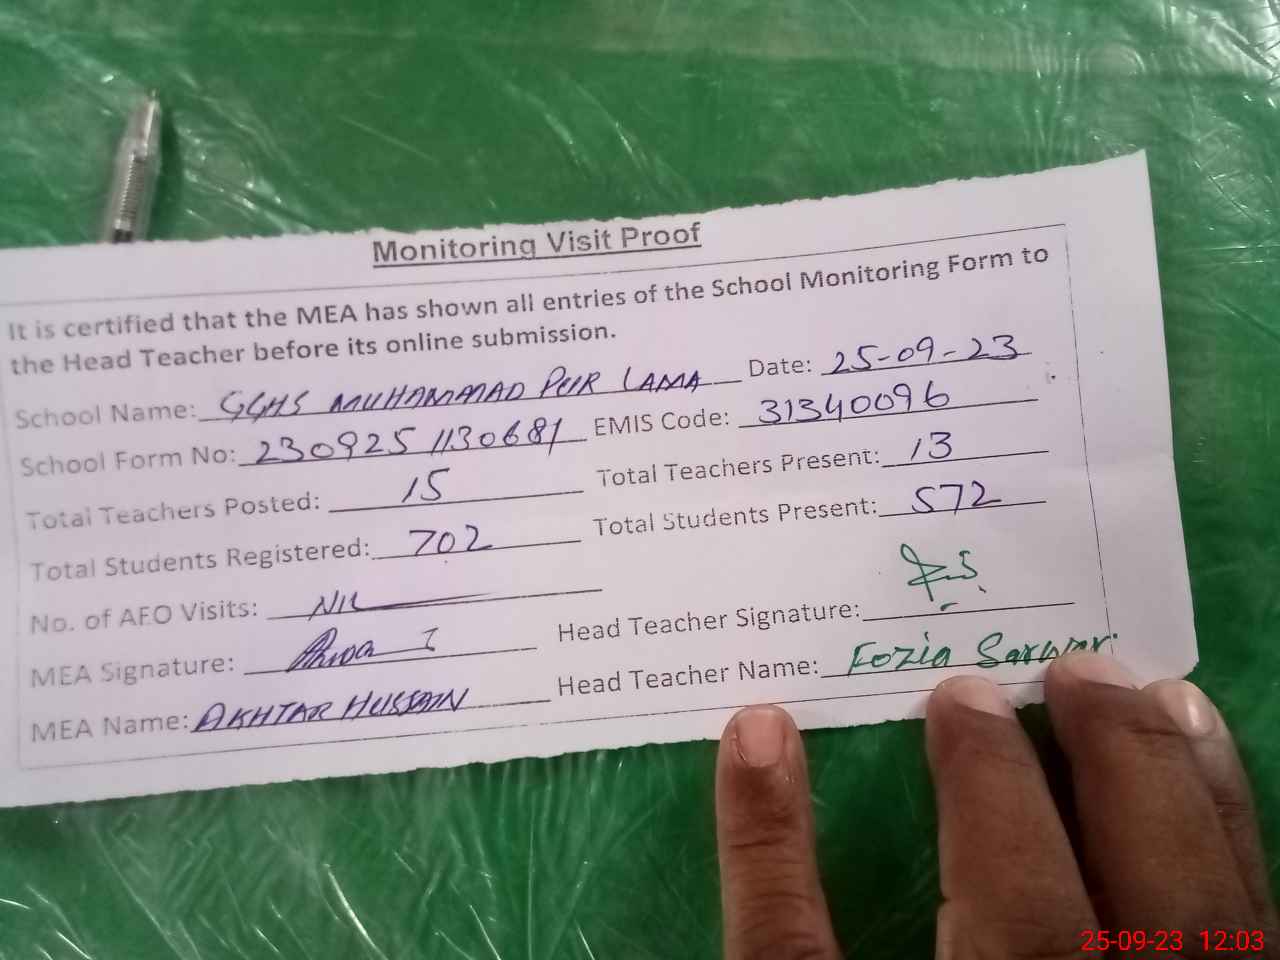 Monitoring Visit Proof
It is certified that the MEA has shown all entries of the School Monitoring Form to
the Head Teacher before its online submission.
School Name: GGHS MUHAMMAD PEIR LAMA Date: 25-09-23
School Form No: 230925 1130681 EMIS Code: 31340096
Total Teachers Posted: 15 Total Teachers Present: 13
Total Students Registered: 702 Total Students Present: 572
No. of AEO Visits: NIL
MEA Signature: Head Teacher Signature:
MEA Name: AKHTAR HUSSAIN Head Teacher Name: Fozia Sarwar
25-09-23 12:03